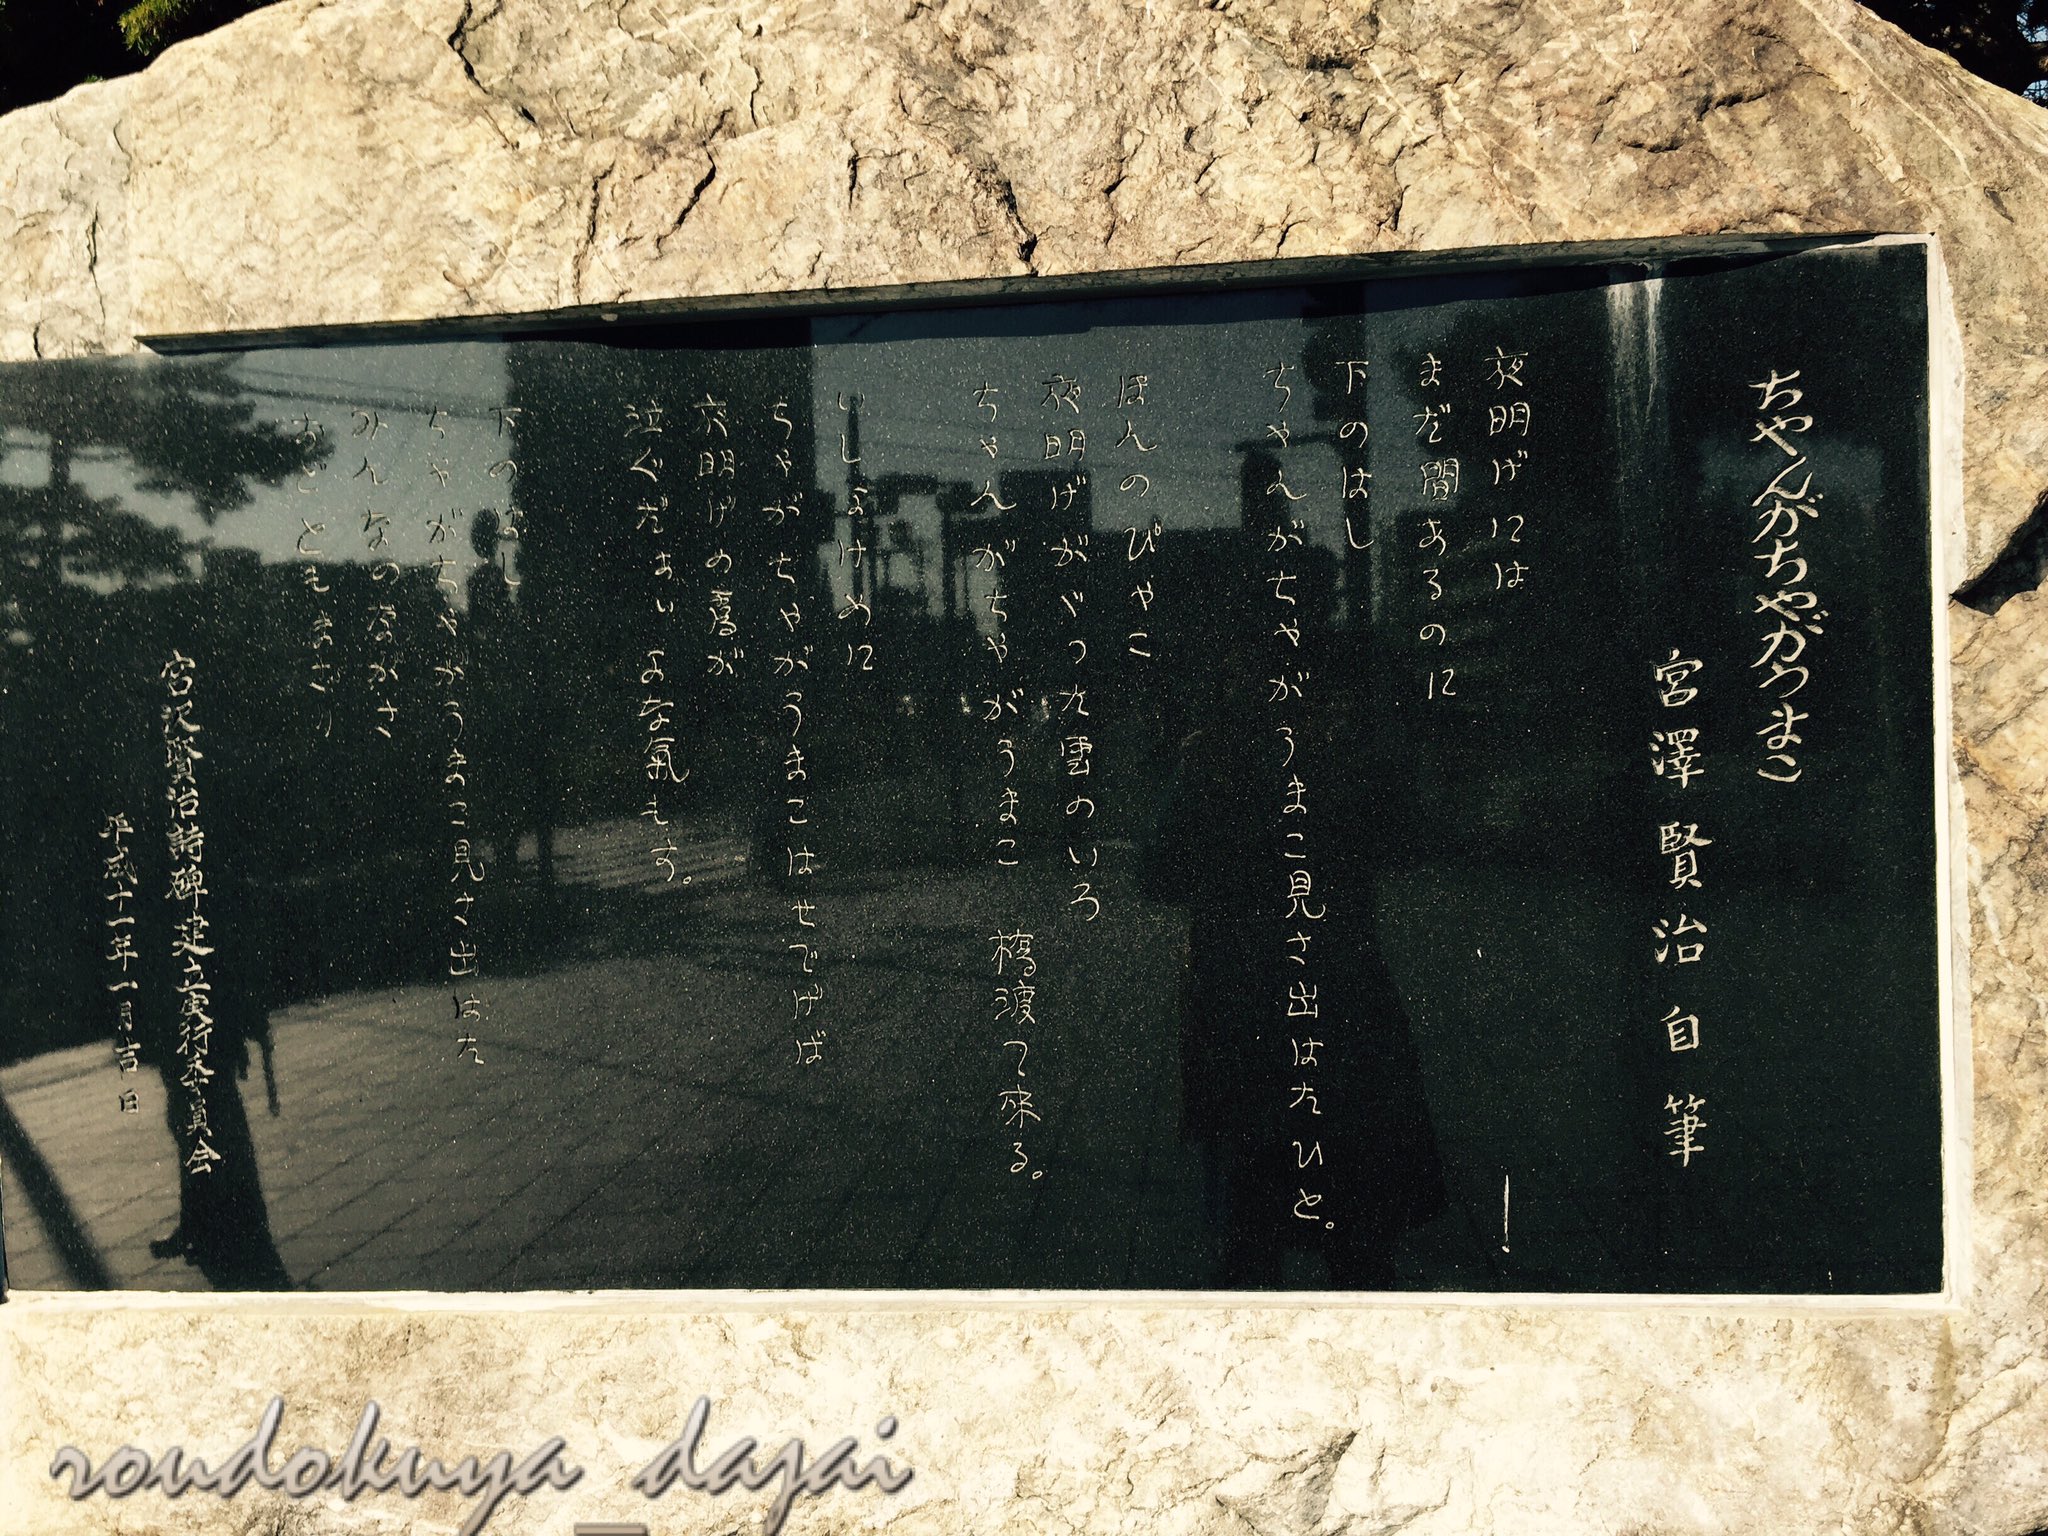 ちやんがちやがうまこ
宮澤賢治自筆
夜明げには
まだ間あるのに
下のはし
ちゃんがちゃがうまこ見さ出はたひと。
ほんのぴゃこ
夜明げがゞった雲のいろ
ちゃんがちゃがうまこ 橋渡て来る。
いしょけめに
ちゃがちゃがうまこはせでげば
夜明げの為が
泣ぐだぁぃよな氣もす。
下のはし
ちゃがちゃがうまこ見さ出はた
みんなのながさ
おどともまざり
宮沢賢治詩碑建立実行委員会
平成十一年十一月吉日
roudokuya_dajai